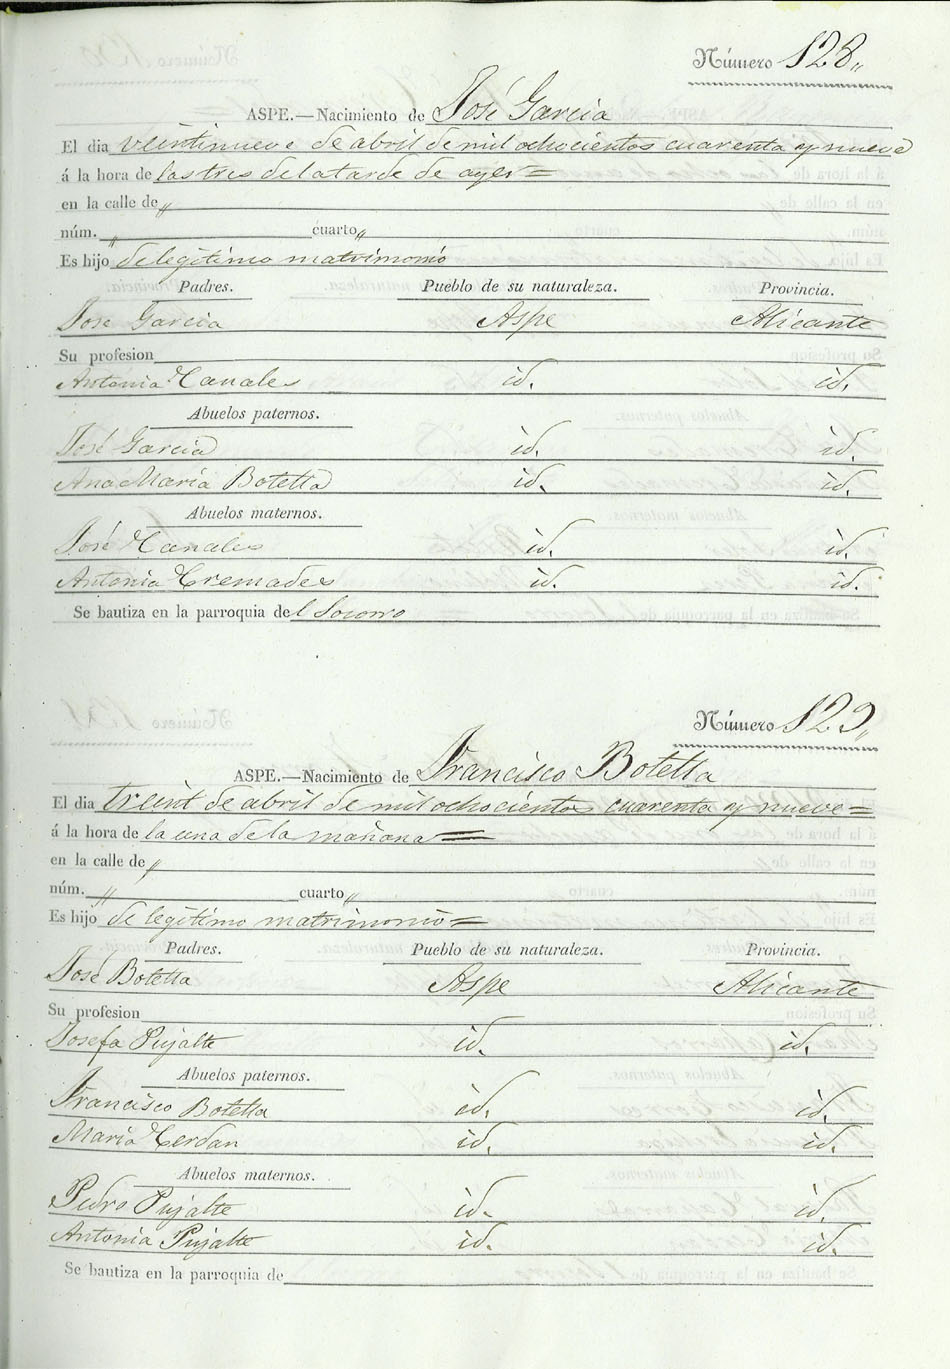 Número 128,,
ASPE.—Nacimiento de José Garcia
El dia veintinueve de abril de mil ochocientos cuarenta y nueve
á la hora de las tres de la tarde de ayer =
en la calle de ,,
núm. ,, cuarto ,,
Es hijo de legitimo matrimonio
Padres. Pueblo de su naturaleza. Provincia.
José Garcia Aspe Alicante
Su profesion
Antonia Canales id. id.
Abuelos paternos.
José Garcia id. id.
Ana Maria Botella id. id.
Abuelos maternos.
José Canales id. id.
Antonia Cremades id. id.
Se bautiza en la parroquia del Socorro
Número 129,,
ASPE.—Nacimiento de Francisco Botella
El dia treint de abril de mil ochocientos cuarenta y nueve =
á la hora de la una de la mañana =
en la calle de ,,
núm. ,, cuarto ,,
Es hijo de legitimo matrimonio =
Padres. Pueblo de su naturaleza. Provincia.
José Botella Aspe Alicante
Su profesion
Josefa Pujalte id. id.
Abuelos paternos.
Francisco Botella id. id.
Maria Cerdan id. id.
Abuelos maternos.
Pedro Pujalte id. id.
Antonia Pujalte id. id.
Se bautiza en la parroquia de